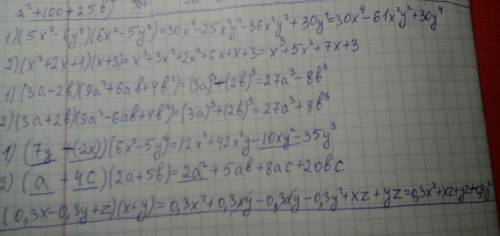 a²+100+25b)
1)(5x²-6y²)(6x²-5y²)=30x⁴-25x²y²-36x²y²+30y²=30x⁴-61x²y²+30y⁴
2)(x²+2x+1)(x+3)=x³+3x²+2x²+6x+x+3=x³+5x²+7x+3
1)(3a-2b)(9a²+6ab+4b²)=(3a)³-(2b)³=27a³-8b³
2)(3a+2b)(9a²-6ab+4b²)=(3a)³+(2b)³=27a³+8b³
1)(7y-(-2x))(6x²-5y²)=12x³+42x²y-10xy²-35y³
2)(a+4c)(2a+5b)=2a²+5ab+8ac+20bc
(0,3x-0,3y+z)(x+y)=0,3x²+0,3xy-0,3xy-0,3y²+xz+yz=0,3x²+xz+yz-0,3y²